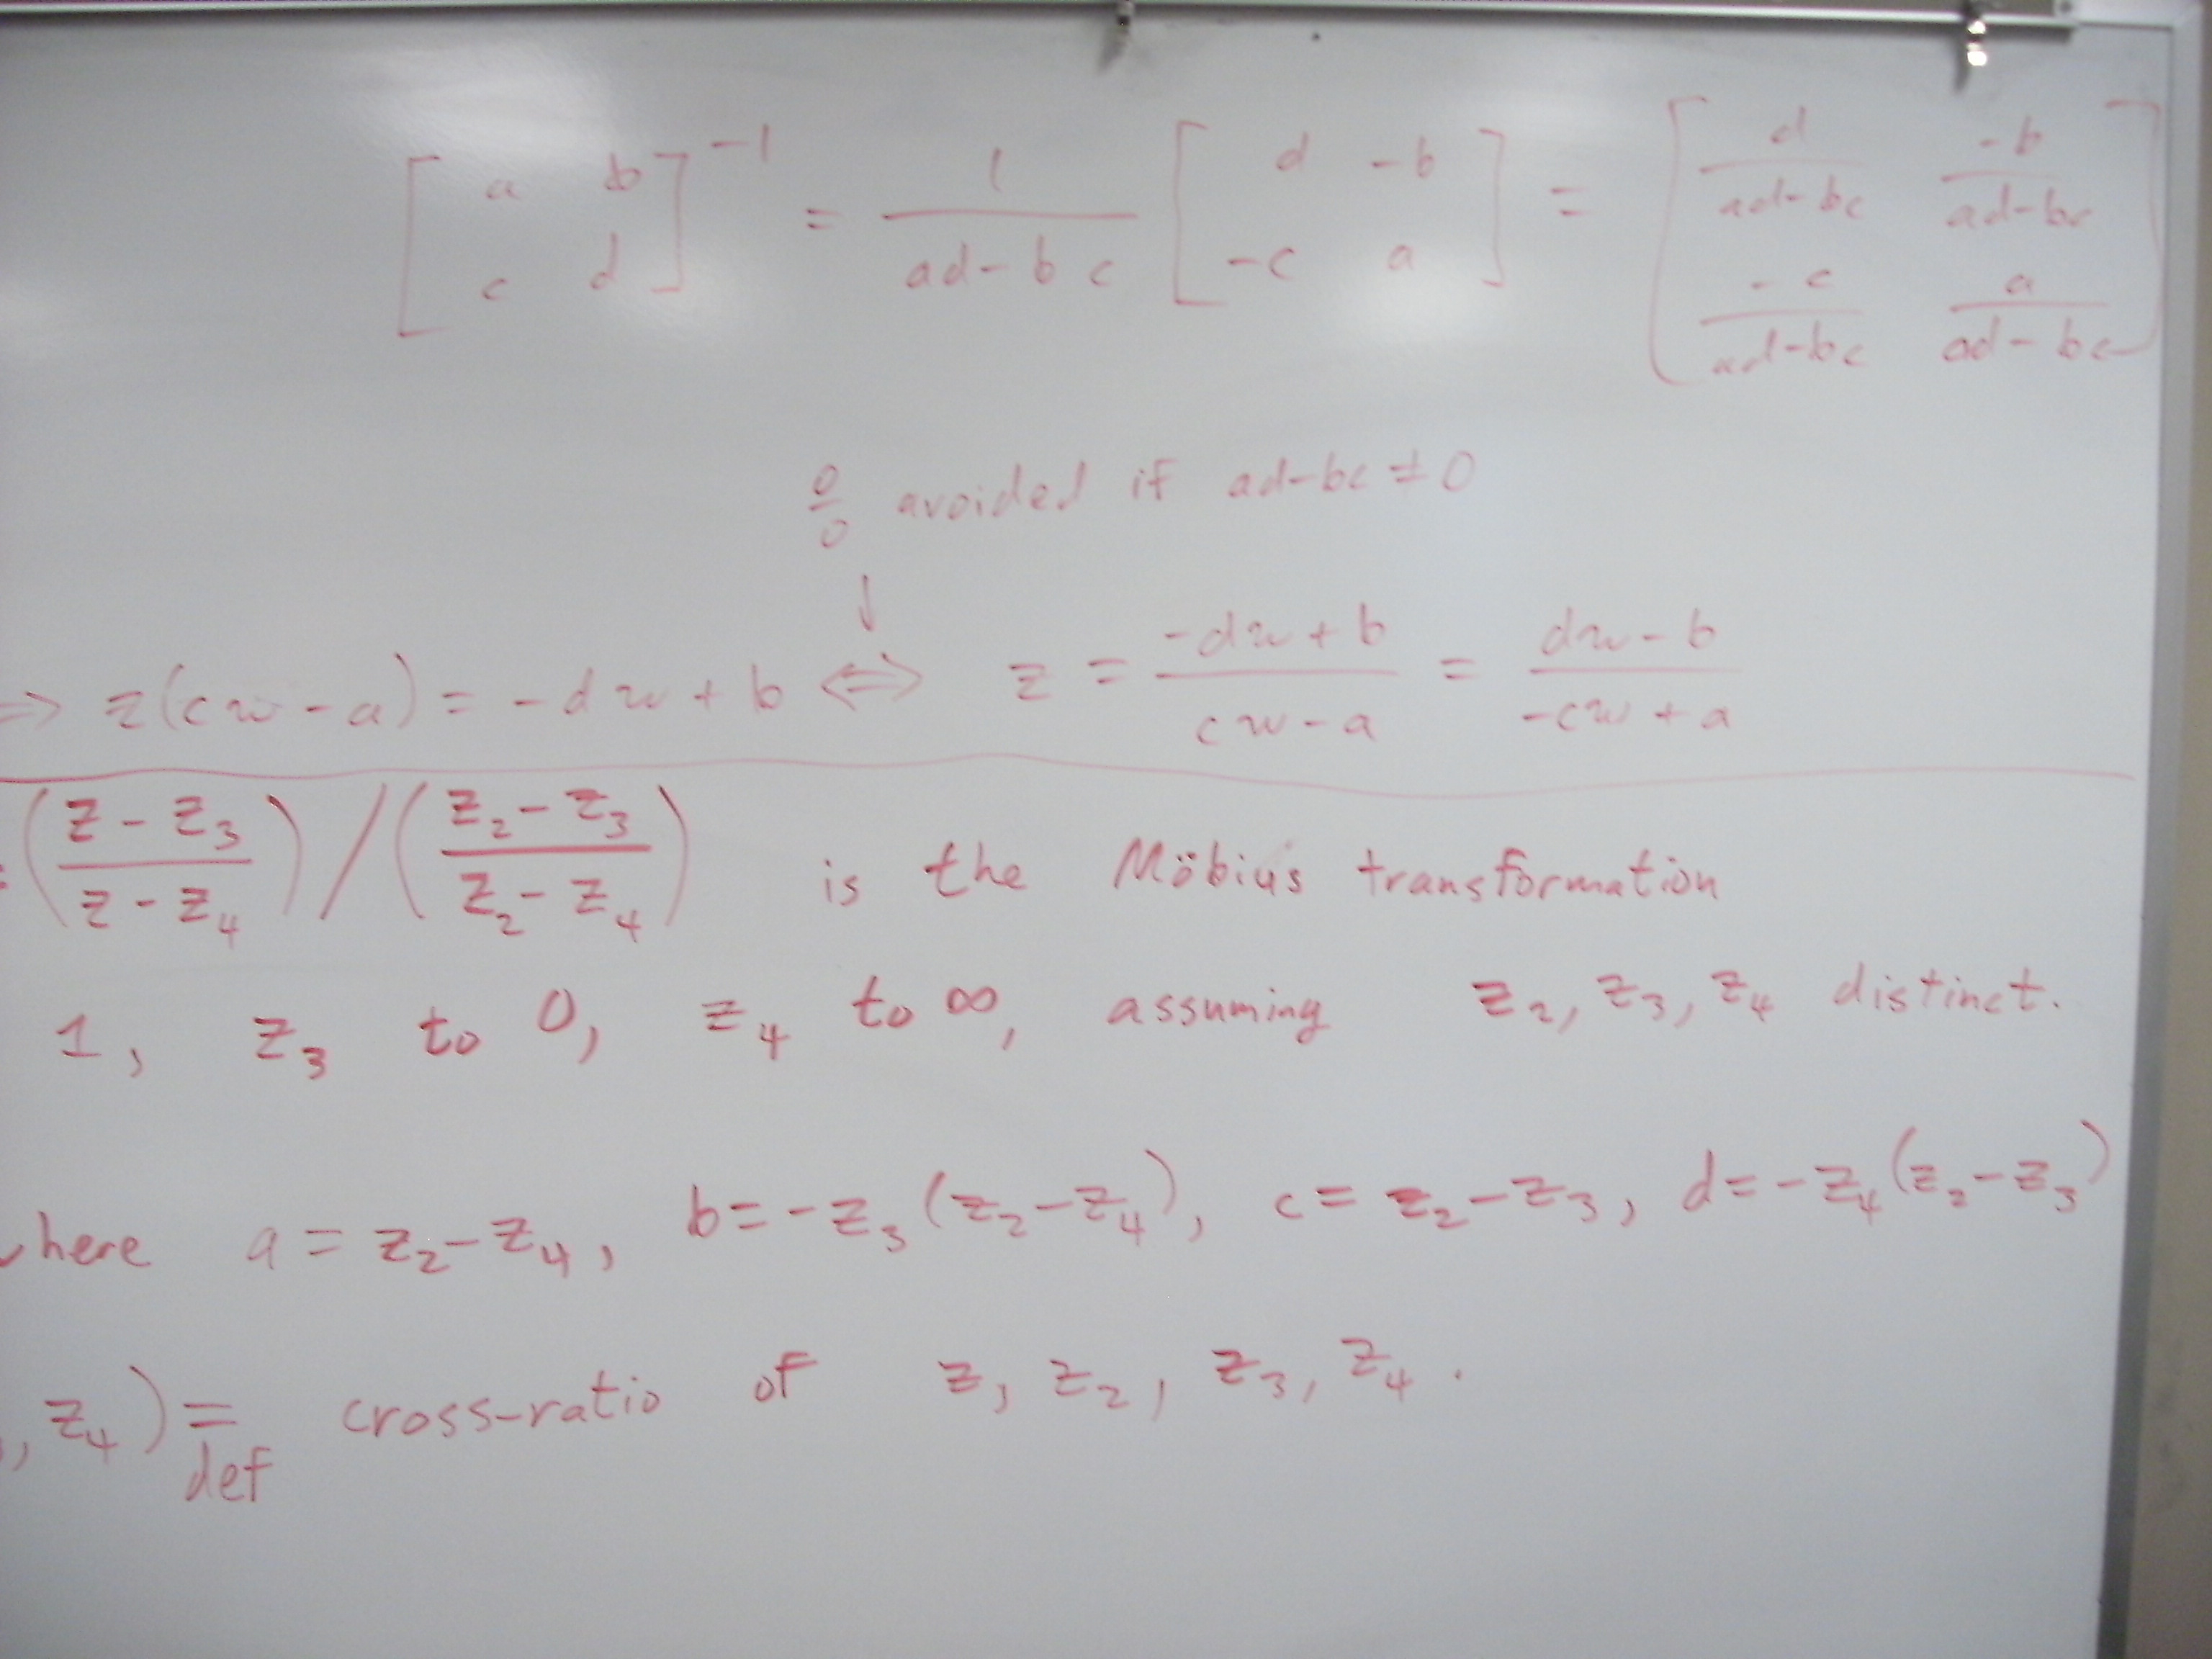 [ a b ; c d ]⁻¹ = 1/(ad-bc) [ d -b ; -c a ] = [ d/(ad-bc) -b/(ad-bc) ; -c/(ad-bc) a/(ad-bc) ]
0/0 avoided if ad-bc ≠ 0
↓
=> z(cw-a) = -dw+b <=> z = (-dw+b)/(cw-a) = (dw-b)/(-cw+a)
= ((z-z₃)/(z-z₄)) / ((z₂-z₃)/(z₂-z₄)) is the Möbius transformation
1, z₃ to 0, z₄ to ∞, assuming z₂, z₃, z₄ distinct.
where a = z₂-z₄, b = -z₃(z₂-z₄), c = z₂-z₃, d = -z₄(z₂-z₃)
, z₄) = cross-ratio of z, z₂, z₃, z₄.
def